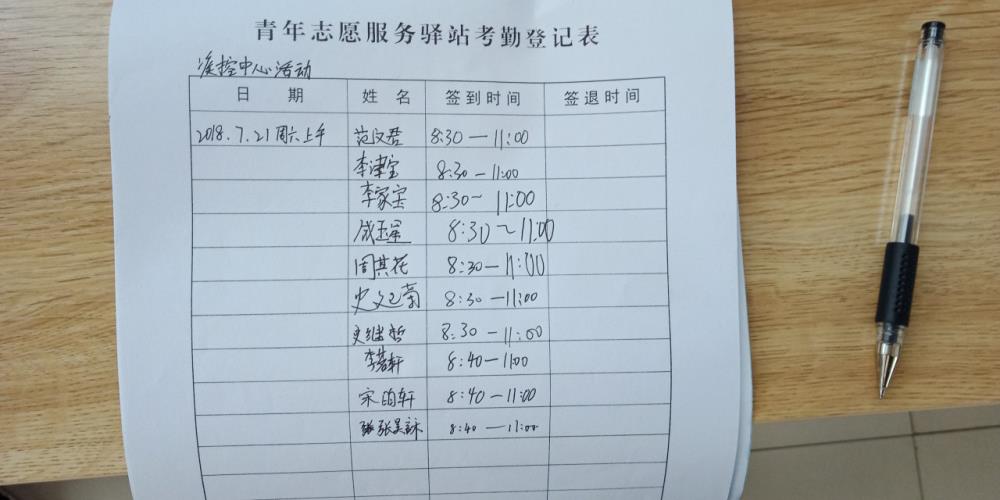 青年志愿服务驿站考勤登记表
准控中心活动
日 期 姓 名 签到时间 签退时间
2018.7.21周六上午 范汶君 8:30—11:00
李津宝 8:30—11:00
李家宝 8:30~ 11:00
成玉星 8:30~11:00
周其花 8:30—11:00
史文菊 8:30—11:00
史继哲 8:30—11:00
李若轩 8:40—11:00
宋昀轩 8:40—11:00
张昊詠 8:40—11:00